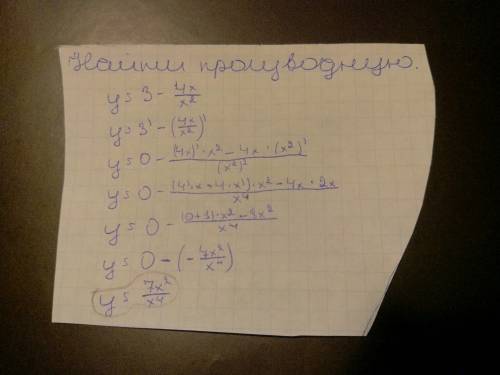 Найти производную.
y = 3 - 4x/x²
y = 3' - (4x/x²)'
y = 0 - ((4x)' · x² - 4x · (x²)')/(x²)²
y = 0 - ((4'·x + 4·x')·x² - 4x · 2x)/x⁴
y = 0 - ((0+1)·x² - 8x²)/x⁴
y = 0 - (-7x²/x⁴)
y = 7x²/x⁴